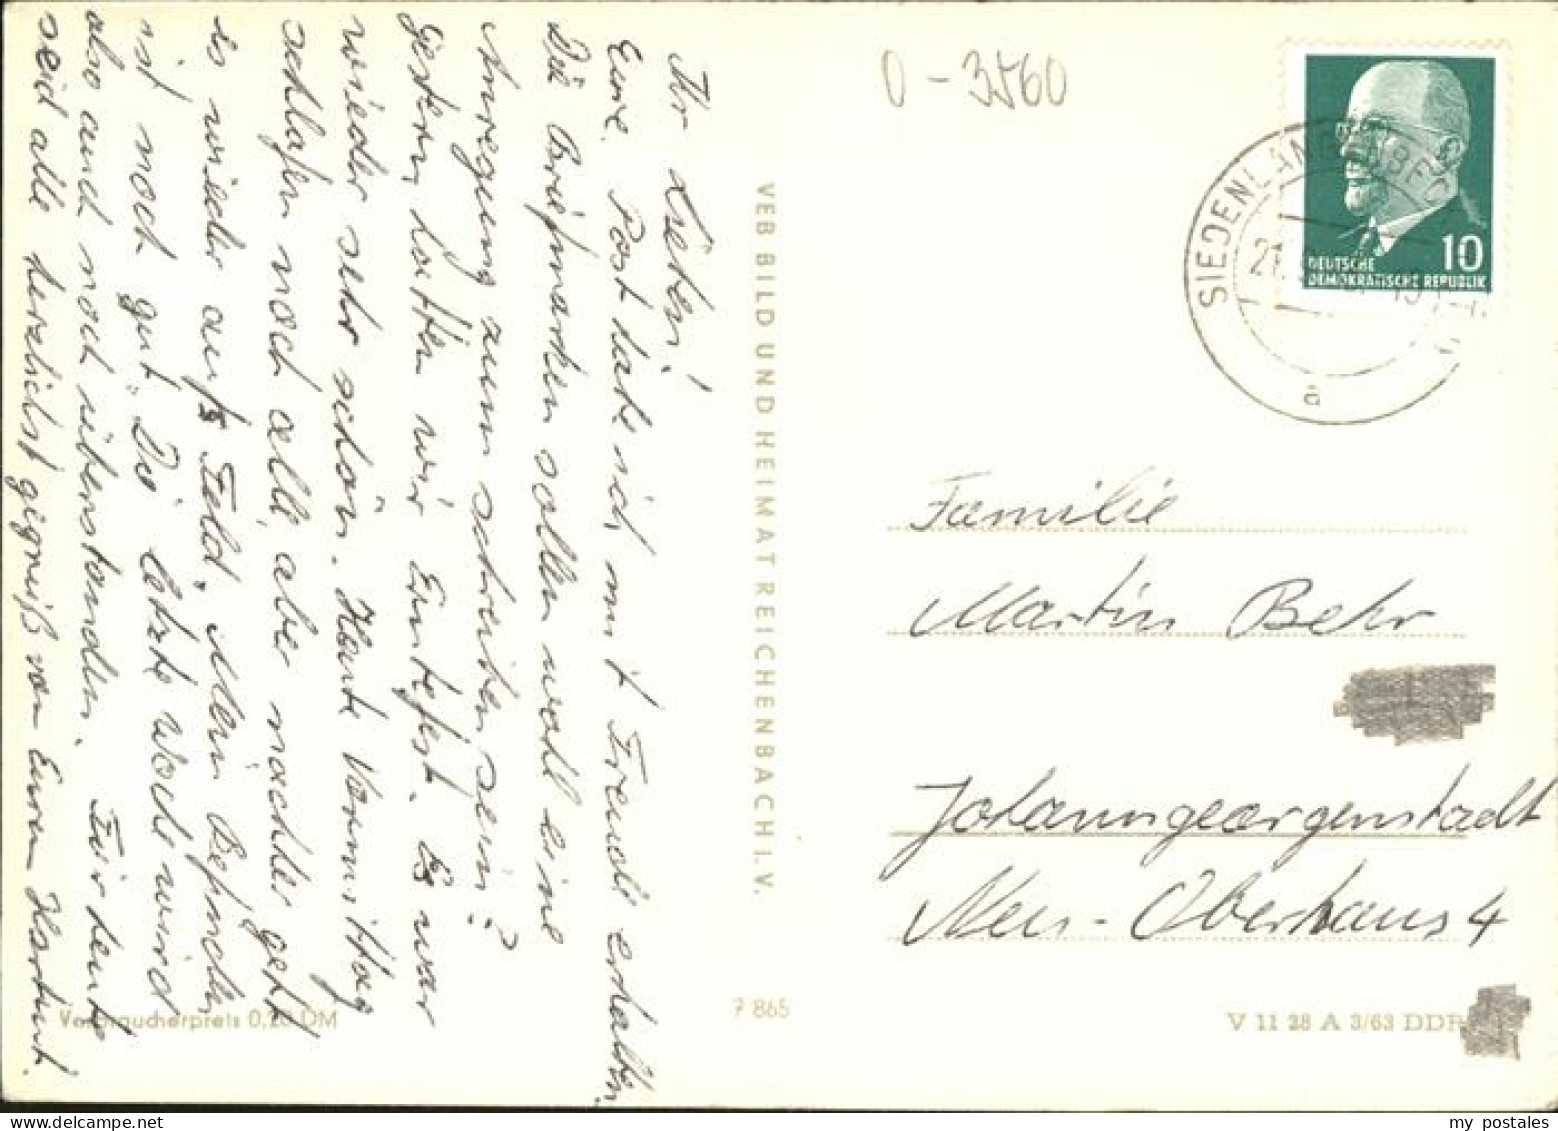 Ihr Lieben!
Eure Post habe ich mit Freude erhalten.
Die Briefmarken sollen wohl eine
Anregung zum schreiben sein?
Gestern hatten wir Erntefest. Es war
wieder sehr schön. Heute Vormittag
schlafen noch alle, aber nachher geht
es wieder aufs Feld. Mein Befinden
ist noch gut. Die letzte Woche wird
also auch noch überstanden. Für heute
seid alle herzlichst gegrüßt von Eurem Hartmut.
Verbraucherpreis 0,20 DM
VEB BILD UND HEIMAT REICHENBACH I. V.
7 865
O - 3560
SIEDENLANGENBECK
21.
a
10
DEUTSCHE
DEMOKRATISCHE REPUBLIK
Familie
Martin Behr
Johanngeorgenstadt
Neu-Oberhaus 4
V 11 28 A 3/63 DDR
my postales